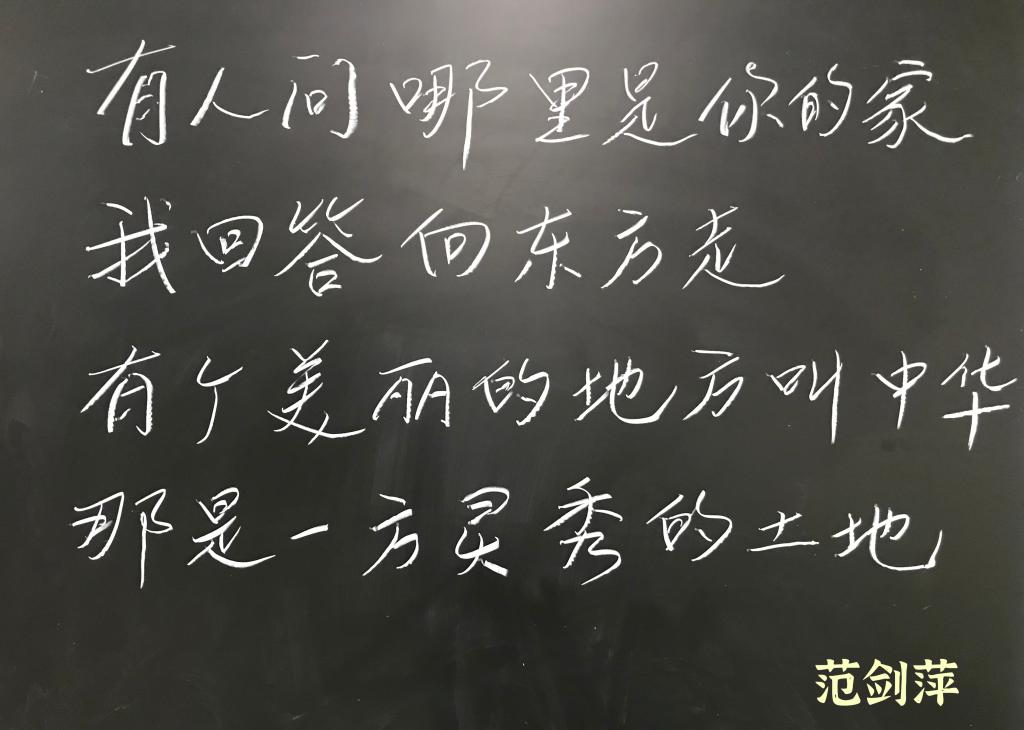 有人问哪里是你的家
我回答向东方走
有个美丽的地方叫中华
那是一方灵秀的土地
范剑萍